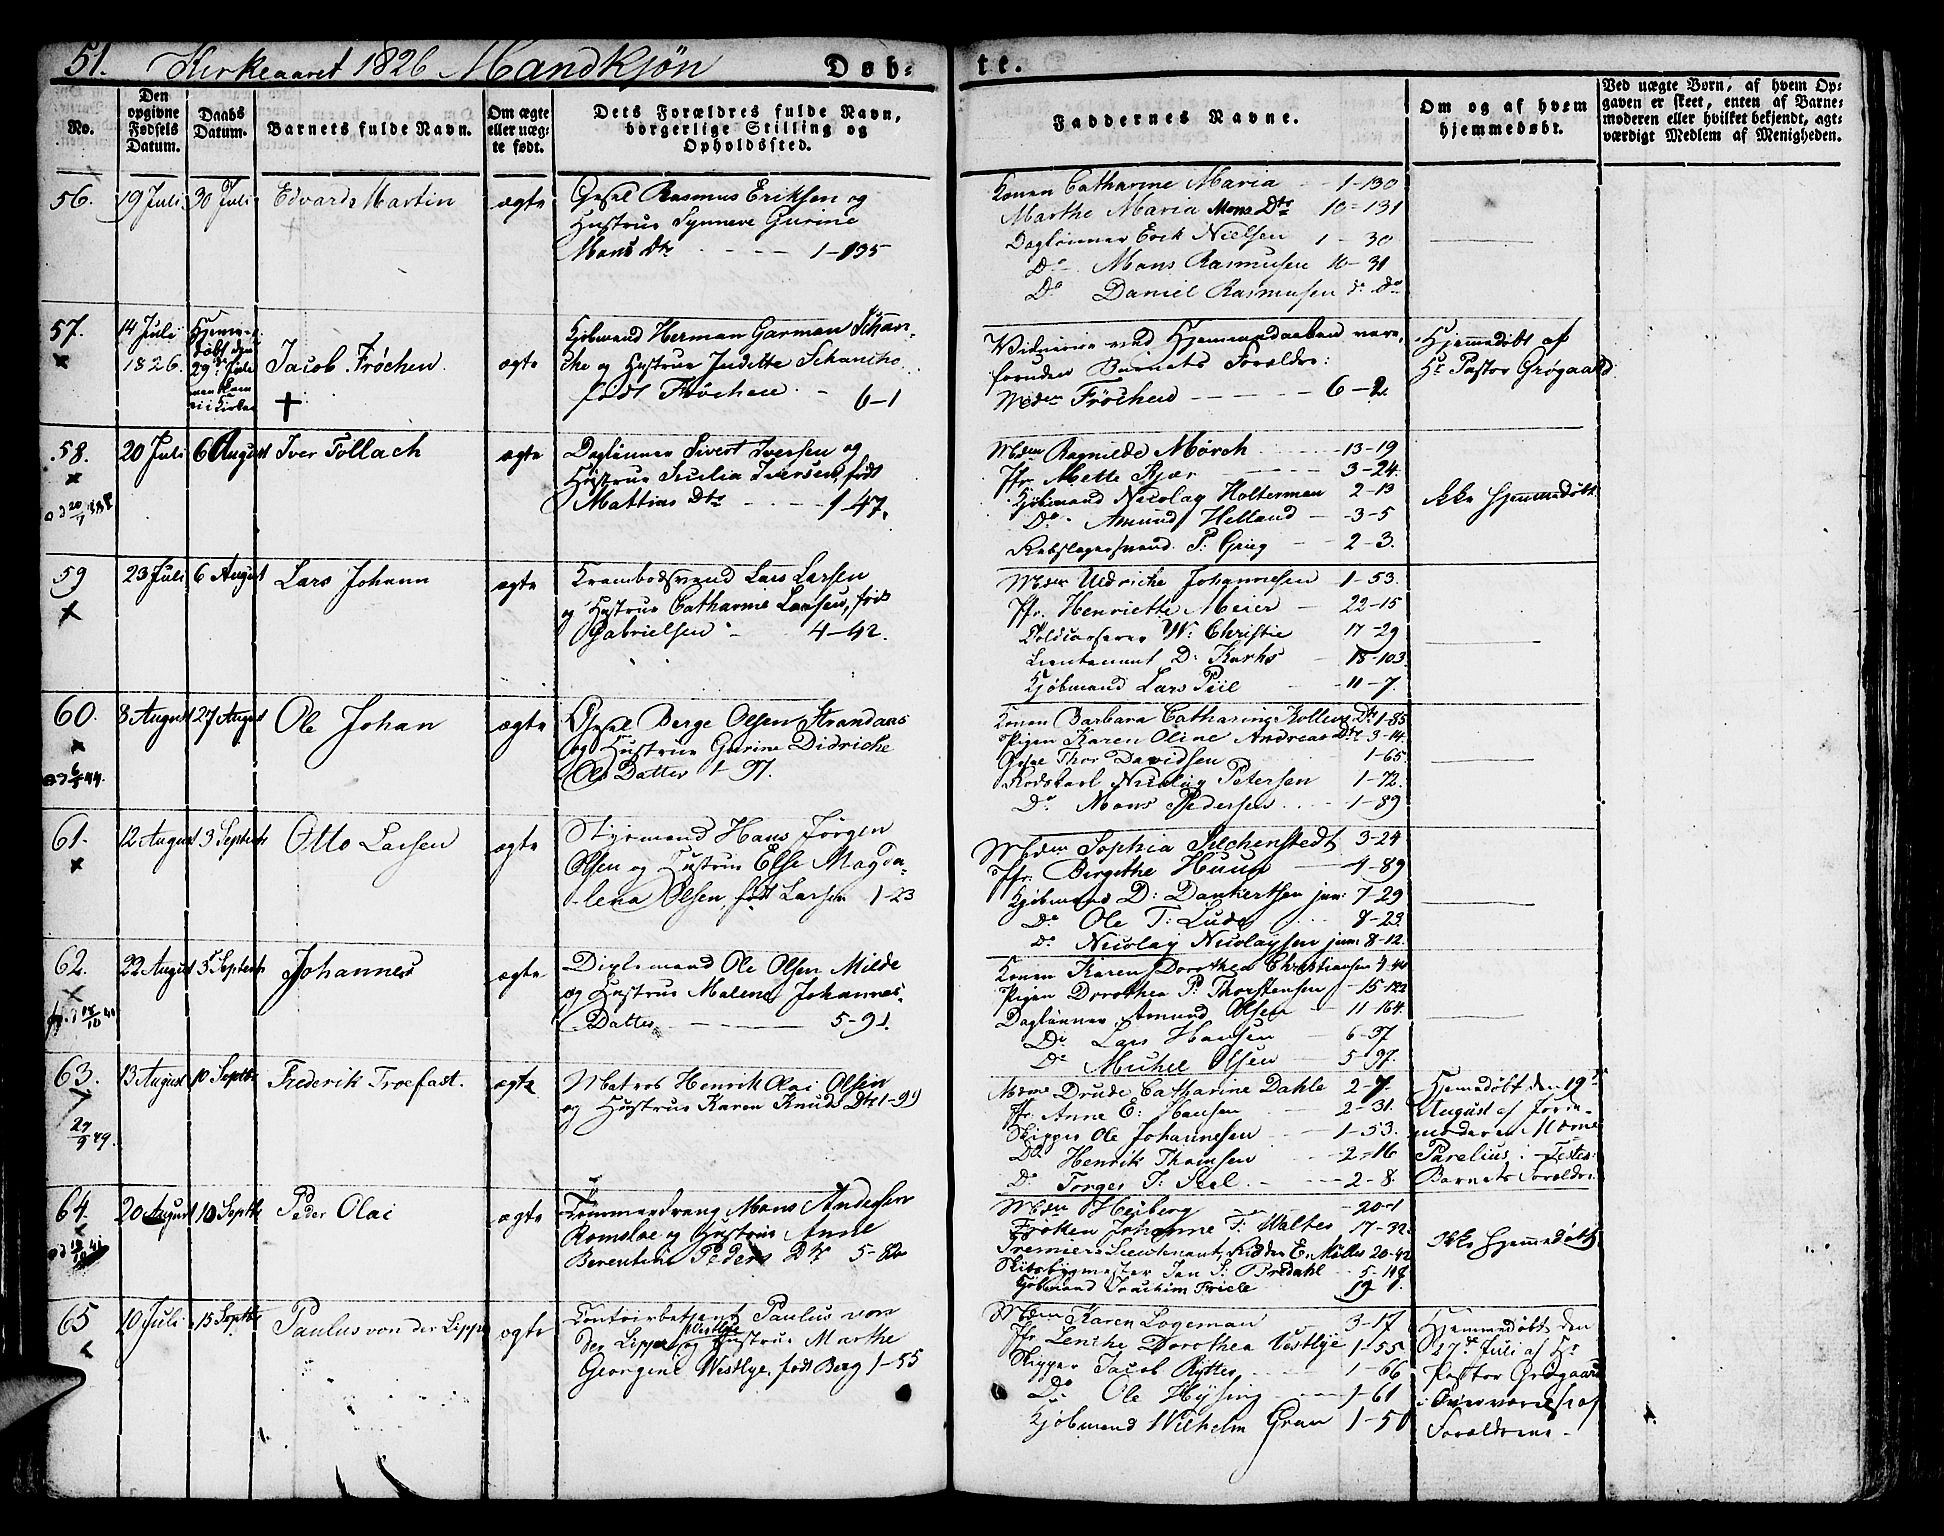 51. Kirkeaaret 1826 Mandkjøn Døb-te.
No.
Den opgivne Fødsels Datum.
Daabs Datum.
Barnets fulde Navn.
Om ægte eller uægte født.
Dets Forældres fulde Navn, borgerlige Stilling og Opholdssted.
Faddernes Navne.
Om og af hvem hjemmedøbt.
Ved uægte Børn, af hvem Opgaven er skeet, enten af Barnemoderen eller hvilket bekjendt, agtværdigt Medlem af Menigheden.
56. 19 Juli 30 Juli Edvard Martin ægte
Gesel Rasmus Eriksen og
Hustrue Synneve Gurine
Mons Dtr 1-135
Konen Catharine Maria 1-130
Marthe Maria Mons Dtr 10-131
Daglønner Erik Nielsen 1-30
Do Mons Rasmusen 10-31
Do Daniel Rasmusen do do
57. 14 Juli 1826
Hjemmedøbt den 29de Juli
Jacob Frøchen ægte
Kjøbmand Herman Garman Schan-
che og Hustrue Juditte Schanche
født Frøchen 6-1
Vidnerne ved Hjemmedaaben vare,
foruden Barnets Forældre:
Mdm Frøchen 6-2
Hjemmedøbt af
Hr Pastor Grøgaard
58. 20 Juli 6 August Iver Follach ægte
Daglønner Sivert Iversen og
Hustrue Sicilia Iversen, født
Mattias Dtr 1-47.
Mdm Ragnilde Mørch 13-19
Jfr. Mette Bjær 3-24.
Kjøbmand Nicolay Holterman 2-13
Do Amund Helland 3-5
Rebslagersvend P: Grieg 2-3.
Ikke hjemmedøbt
59 23 Juli 6 August Lars Johann ægte
Krambodsvend Lars Larsen
og Hustrue Catharine Larsen, født
Gabrielsen 4-42.
Mdm Uldriche Johannesen 1-53.
Jfr. Henriette Meier 22-15
Toldcasserer W: Christie 17-29
Lieutenant D: Karhs 18-103.
Kjøbmand Lars Piil 11-7.
60. 8 August 27 August Ole Johan ægte
Gesel Berge Olsen Strandaas
og Hustrue Gurine Didriche
Ols Datter 1-97.
Konen Barbara Catharine Dtr 1-85
Pigen Karen Oline Andreas Dtr 3-14.
Gesel Thor Davidsen 1-65.
Rodskarl Nicolay Petersen 1-72.
Do Mons Pedersen 1-89
61. 12 August 3 Septembr Otto Larsen ægte
Styrmand Hans Jørgen
Olsen og Hustrue Else Magda-
lena Olsen, født Larsen 1-23
Mdm Sophia Selchenstedt 3-24
Jfr. Birgithe Huun 4-89
Kjøbmand D: Dankertsen jun: 7-29
Do Ole T: Lude 8-23.
Do Nicolay Nicolaysen jun: 8-12.
62. 22 August 3 Septembr Johannes ægte
Dixlemand Ole Olsen Milde
og Hustrue Malene Johannes-
Datter 5-91.
Konen Karen Dorothea Christiansen 4-40
Pigen Dorothea P: Thorstensen 15-122
Daglønner Amund Olsen 11-164.
Do Lars Hansen 6-37
Do Michel Olsen 5-97.
63. 13 August 10 Septbr Frederik Troefast. ægte
Matros Henrik Olai Olsen
og Hustrue Karen Knuds Dtr 1-99
27/9 49.
Mdme Drude Catharine Dahle 2-7.
Jfr. Anne E: Hansen 2-31.
Skipper Ole Johannesen 1-53.
Do Henrik Thomsen 2-16
Do Torger T: Sæl. 2-8.
Hjemmedøbt den 19de
August af Jorde-
moderen Mdme
Parelius: Testes
Barnets Forældre
64. 20 August 10 Septbr Peder Olai ægte
Tømmerdreng Mons Andersen
Romsloe og Hustrue Anne
Berentine Peders Dtr 5-82
Mdm Heiberg 20-1
Frøken Johanne F: Walter 17-32
Premier Lieutenant, Ridder E: Møller 20-42
Skibsbygmester Jan S: Bredahl 5-
Kjøbmand Joachim Friele 19-1.
Ikke hjemmedøbt
65 10 Juli 15 Septbr Paulus von der Lippe ægte
Contoirbetjent Paulus von
der Lippe Vestlye og Hustrue Marthe
Georgine Westlye, født Berg 1-55
Mdm Karen Logeman 3-17
Jfr Lenche Dorothea Vestlye 1-55
Skipper Jacob Rytter 1-66
Do Ole Hysing 1-61
Kjøbmand Wilhelm Gran 1-50
Hjemmedøbt den
27de Juli af Hr
Pastor Grøgaard
i Overværelse af
Forældrene.